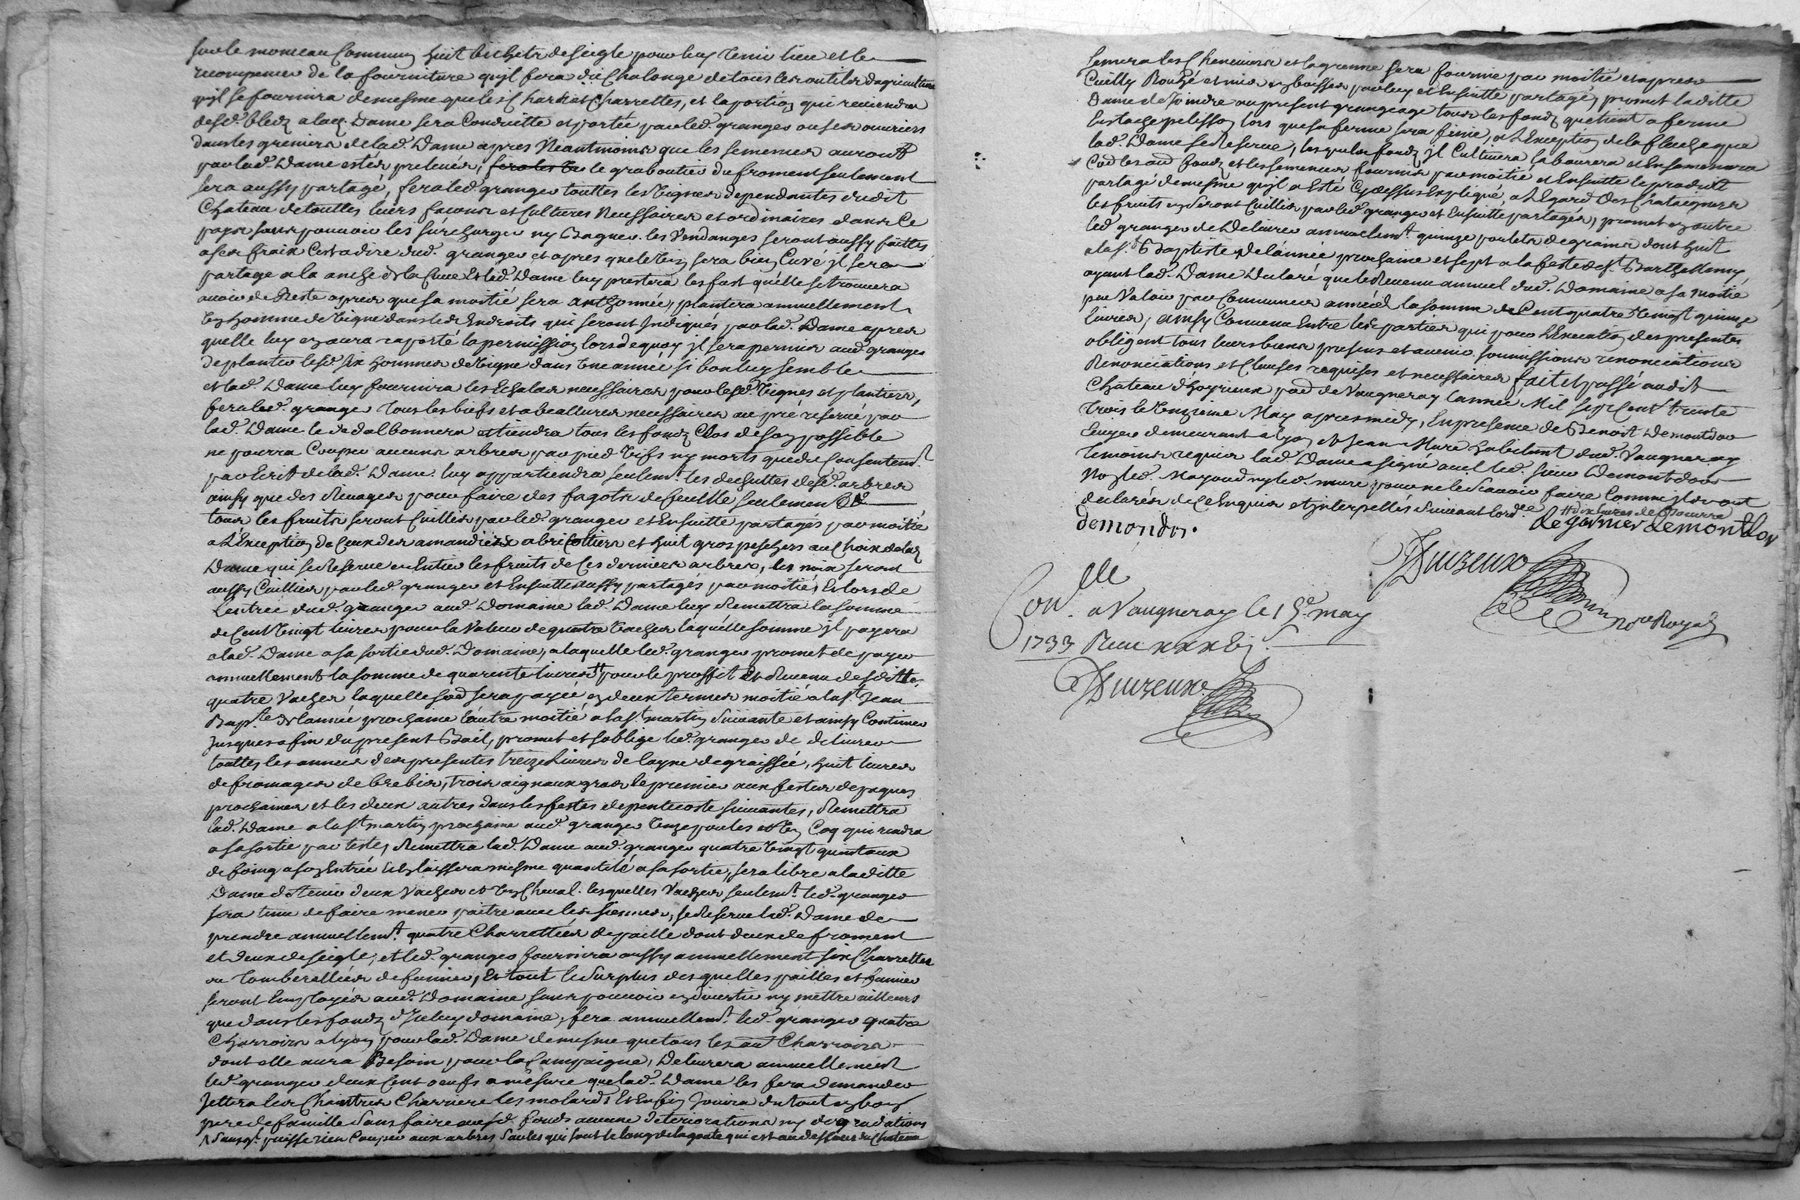 sur le monceau Commun huit bichets de seigle pour luy tenir lieu et de
recompense de la fourniture qu'il fera du Chalonge de tous les outils d'agriculture
qu'il se fournira de mesme que les Chars et Charrettes, et la portion qui reviendra
desd. bleds a lad. Dame sera Conduitte et portée par led. granger ou ses ouvriers
dans les greniers de lad. Dame apres Neantmoins que les semences auront
par lad. Dame estés prelevés, le graboutier du froment seulement
sera aussy partagé, fera led. granger touttes les Vignes dependantes dudit
Chateau de touttes leurs façons et Cultures Necessaires et ordinaires dans le
pays sans pouvoir les surcharger ny Bagner. les Vendanges seront aussy faittes
a ses fraix C'est a dire dud. granger et apres que le Vin sera bien Cuvé il sera
partagé a la anche de la Cuve et lad. Dame luy prestera les futs qu'elle se trouvera
avoir de Reste apres que sa moitié sera anthonnée, plantera annuellement
Un homme de Vigne dans les Endroits qui seront Indiqués par lad. Dame apres
quelle luy en aura raporté la permission lors de quoy il sera permis aud. granger
de planter lesd. six hommes de Vigne dans Une année si bon luy semble
et lad. Dame luy fournira les Echalas necessaires pour lesd. Vignes et plantiers,
fera led. granger tous les biefs et abeallures necessaires au pré reservé par
lad. Dame le dedalbonnera et tiendra tous les fonds Clos de son possible
ne pourra Couper aucuns arbres par pied Vifs ny morts que du Consentem.t
par Ecrit de lad. Dame luy appartiendra seulem.t les dechuttes desd. arbres
ainsy que des Ramages pour faire des fagots de feuille seulement
tous les fruits seront Cuillis par led. granger et Ensuitte partagés par moitié
a L'Exception de Ceux des amandiers abricottiers et huit gros peschers au Choix de lad.
Dame qui se Reserve en Entier les fruits de Ces derniers arbres, les noix seront
aussy Cuillies par led. granger et Ensuitte aussy partagés par moitié, Et lors de
L'entrée dud. granger aud. Domaine lad. Dame luy Remettra la somme
de Cent Vingt livres pour la Valeur de quatre Vaches laquelle somme il payera
a lad. Dame a sa sortie dud. Domaine, a laquelle led. granger promet de payer
annuellement la somme de quarente livres pour le proffit et Revenu desdittes
quatre Vaches laquelle sera payée en deux termes moitié a la St. Jean
Bap.te de l'année prochaine l'autre moitié a la St. martin Suivante et ainsy Continuer
Jusques a fin du present Bail, promet et s'oblige led. granger de delivrer
touttes les années des presentes treize livres de layne degraissée, huit livres
de fromages de brebis, trois aigneaux gras le premier aux festes de paques
prochaines et les deux autres dans les festes de pentecoste Suivantes, Remettra
lad. Dame a la St. martin prochaine aud. granger Unze poules et Un Coq qui rendra
a sa sortie par testes, Remettra lad. Dame aud. granger quatre Vingt quintaux
de foing a son Entrée et en laissera mesme quantité a sa sortie, sera libre a laditte
Dame de tenir deux Vaches et Un Cheval. lesquelles Vaches seulem.t led. granger
sera tenu de faire mener paitre avec les siennes, se Reserve lad. Dame de
prendre annuellem.t quatre Charrettées de paille dont deux de froment
et deux de seigle, et led. granger fournira aussy annuellement six Charrettes
ou tomberellées de fumier, Et tout le Surplus desquelles pailles et fumier
seront Employés aud. Domaine sans pouvoir en divertir ny mettre ailleurs
que dans les fonds d'Iceluy domaine, fera annuellem.t led. granger quatre
Charrois a Lyon pour lad. Dame de mesme que tous les aut. Charrois
dont elle aura Besoin pour la Campagne, Delivrera annuellement
led. granger deux Cent oeufs a mesure que lad. Dame les fera demander
Jettera les Chaintres Charriera les molards Et Enfin Jouira du tout en bon
pere de famille Sans faire ausd. fonds aucunes deteriorations ny degradations
Sans q. puisse rien Couper aux arbres Saules qui sont le long de la goute qui est au dessous du Chateau
Semera les Chenevieres et la graine sera fournie par moitié et apres
Cuilly Rouhé et mis en bosses par luy et Ensuitte partagé, promet laditte
Dame de Joindre au present grangeage tous les fonds que tient a ferme
Eustache pelisson lors que sa ferme sera finie, a L'Exception de la flecheque
lad. Dame se Reserve, lesquels fonds il Cultivera labourera et Ensemencera
Co'es aut. fonds et les semences fournies par moitié et Ensuitte le produit
partagé de mesme qu'il a Esté Cydessus Expliqué, a L'Egard des Chataigners
les fruits en seront Cuillis par led. granger et Ensuitte partagés, promet en outre
led. granger de Delivrer annuellem.t quinze poulets de grains dont huit
a la St. Baptiste de l'année prochaine et sept a la feste de St. Barthellemy
ayant lad. Dame Declaré que le Revenu annuel dud. Domaine a sa moitié
peu Valoir par Communes années la somme de Cent quatre Vingt quinze
livres, ainsy Convenu Entre les parties qui pour L'Execution des presentes
obligent tous leurs biens presens et avenir Soumissions renonciations
Renonciations et Clauses requises et necessaires fait et passé audit
Chateau d'hoyrieux par. de Vaugneray l'année Mil sept Cent trente
trois le Unzieme May apres midy, En presence de Benoit Demondor
Tuyer demeurant a Lyon et Jean Mure habitant dud. Vaugneray
temoins requis lad. Dame a signé avec led. sieur Demondor
Non led. Mayoud ny led. mure pour ne le Scavoir faire Comme ils ont
declarés de Ce Enquis et Interpellés Suivant lord.ce
demondor. de garnier demontdor
Duizeux
no.re Royal
Con.lle
a Vaugneray le 15e. may
1733 Receu xxx
Duizeux